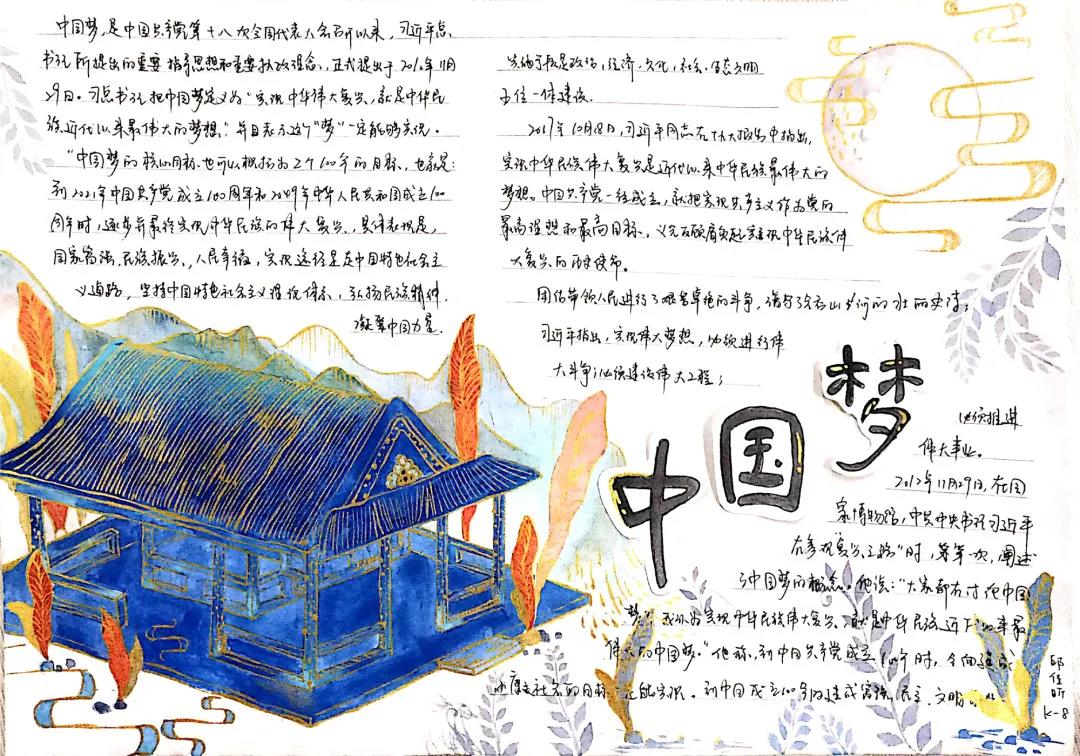 中国梦,是中国共产党第十八次全国代表大会召开以来,习近平总
书记所提出的重要指导思想和重要执政理念,正式提出于2012年11月
29日。习总书记把中国梦定义为"实现中华伟大复兴,就是中华民
族近代以来最伟大的梦想,"并且表示这个"梦"一定能够实现。
"中国梦的核心目标也可以概括为2个100年的目标,也就是:
到2021年中国共产党成立100周年和2049年中华人民共和国成立100
周年时,逐步并最终实现中华民族的伟大复兴,具体表现是,
国家富强,民族振兴,人民幸福,实现途径是走中国特色社会主
义道路,坚持中国特色社会主义理论体系,弘扬民族精神,
凝聚中国力量,
实施手段是政治,经济,文化,社会,生态文明
五位一体建设。
2017年10月8日,习近平同志在十九大报告中指出,
实现中华民族伟大复兴是近代以来中华民族最伟大的
梦想。中国共产党一经成立,就把实现共产主义作为党的
最高理想和最高目标,义无反顾肩负起实现中华民族伟
大复兴的历史使命。
团结带领人民进行了艰苦卓绝的斗争,谱写了气吞山河的壮丽史诗;
习近平指出,实现伟大梦想,必须进行伟
大斗争;必须建设伟大工程;
中国梦
必须推进
伟大事业。
2012年11月29日,在国
家博物馆,中共中央书记习近平
在参观"复兴之路"时,第一次,阐述
了中国梦的概念。他说:"大家都在讨论中国
梦。我以为实现中华民族伟大复兴,就是中华民族近代以来最
伟大的中国梦。"他称,到中国共产党成立100年时,全面建成
小康社会的目标一定能实现。到中国成立100年时建成富强,民主,文明
邱佳昕
K-8